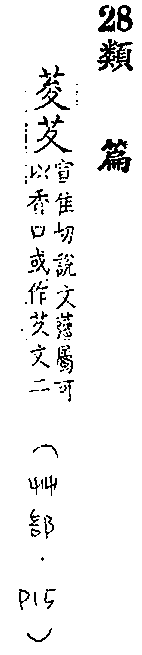 28類篇
荾芕宣隹切說文薑屬可
以香口或作芕文二
（艸部．P15）